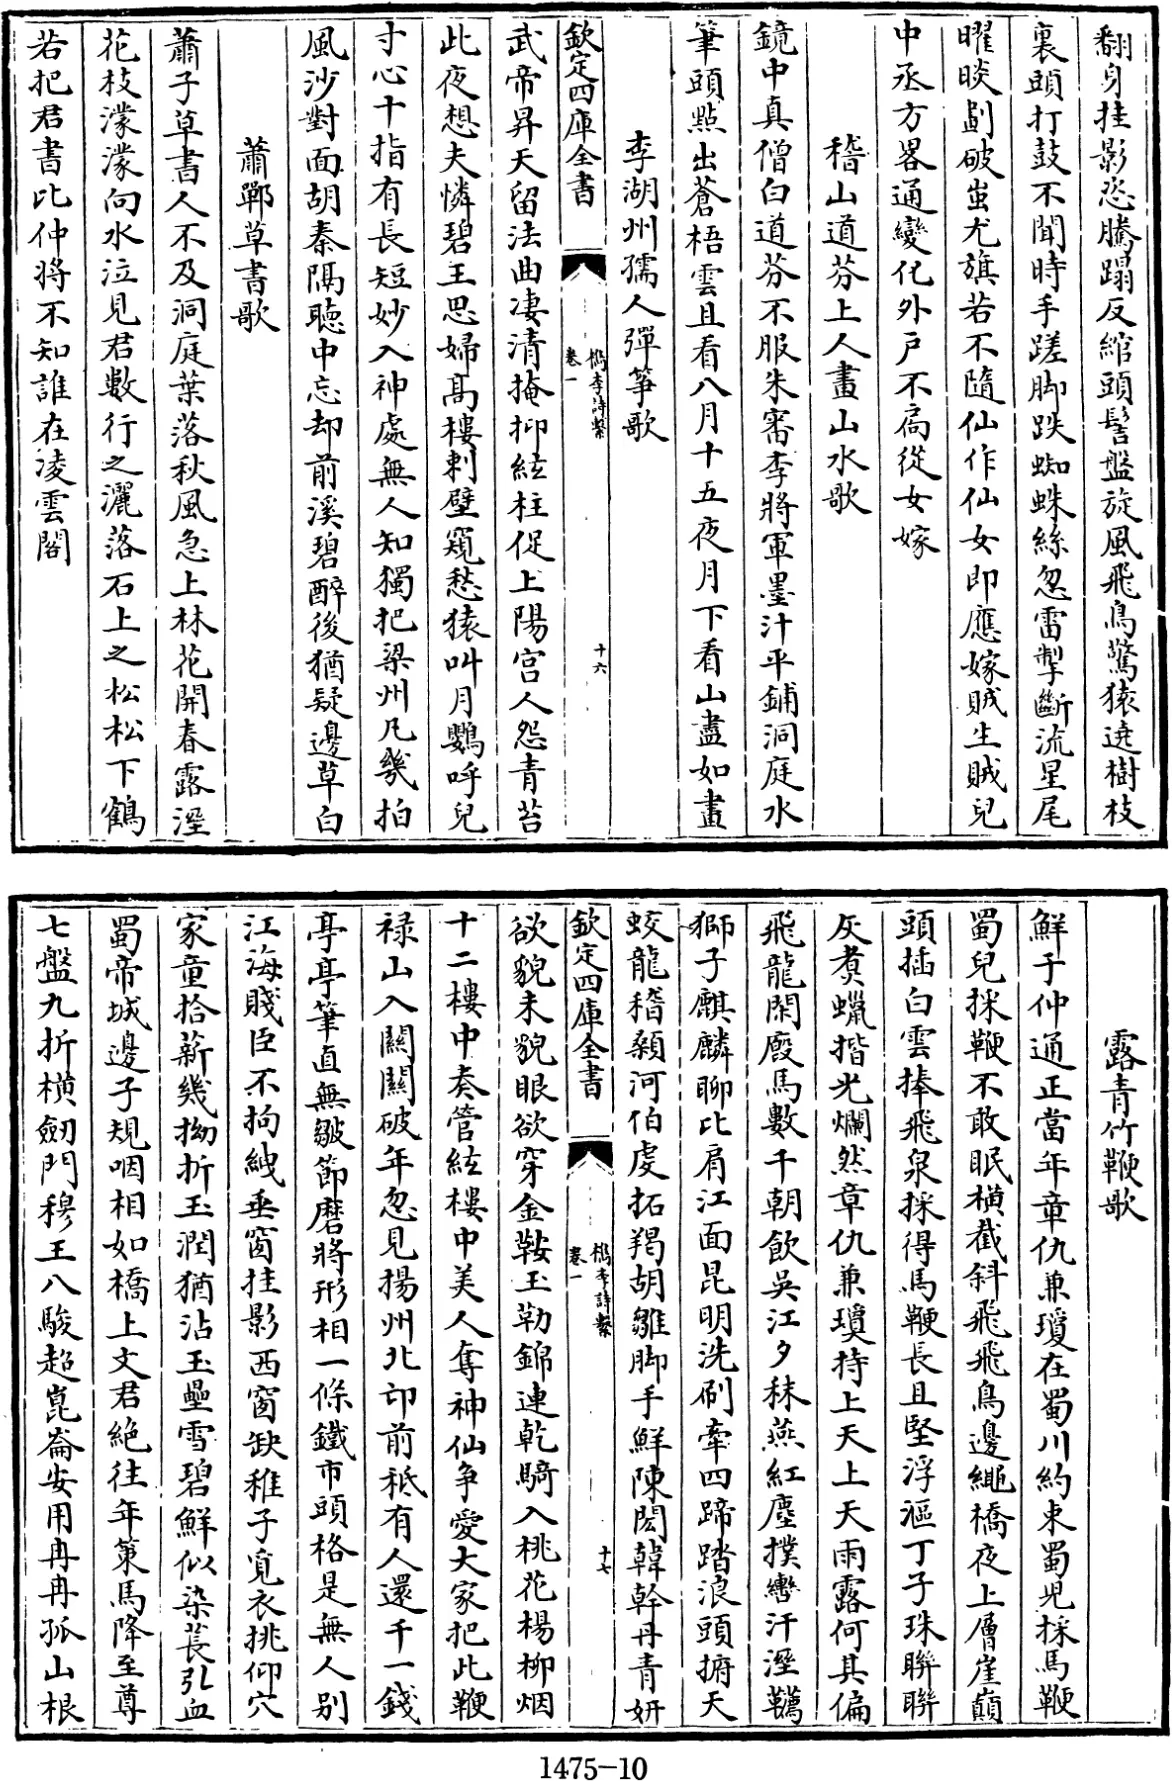 翻身挂影恣騰蹋反綰頭髻盤旋風飛鳥驚猿遶樹枝
裏頭打鼓不聞時手蹉脚跌蜘蛛絲忽雷掣斷流星尾
曜睒劃破蚩尤旗若不隨仙作仙女即應嫁賊生賊兒
中丞方畧通變化外戸不扃從女嫁
稽山道芬上人畫山水歌
鏡中真僧白道芬不服朱審李將軍墨汁平鋪洞庭水
筆頭㸃出蒼梧雲且看八月十五夜月下看山盡如畫
李湖州孺人彈箏歌
欽定四庫全書
檇李詩繫
卷一
十六
武帝昇天留法曲凄清掩抑絃柱促上陽宫人怨青苔
此夜想夫憐碧玉思婦髙樓刺壁窺愁猿叫月鸚呼兒
寸心十指有長短妙入神處無人知獨把梁州凡幾拍
風沙對面胡秦隔聴中忘却前溪碧醉後猶疑邊草白
蕭鄲草書歌
蕭子草書人不及洞庭葉落秋風急上林花開春露溼
花枝濛濛向水泣見君數行之灑落石上之松松下鶴
若把君書比仲將不知誰在凌雲閣
露青竹鞭歌
鮮于仲通正當年章仇兼瓊在蜀川約束蜀兒採馬鞭
蜀兒採鞭不敢眠横截斜飛飛鳥邊繩橋夜上層崖巔
頭插白雲捧飛泉採得馬鞭長且堅浮漚丁子珠聨聨
灰煑蠟揩光爛然章仇兼瓊持上天上天雨露何其偏
飛龍閑廐馬數千朝飲吳江夕秣燕紅塵撲轡汗溼韉
獅子麒麟聊比肩江面昆明洗刷牽四蹄踏浪頭㨕天
蛟龍稽顙河伯虔拓羯胡雛脚手鮮陳閎韓幹丹青妍
欽定四庫全書
檇李詩繫
卷一
十七
欲貌未貌眼欲穿金鞍玉勒錦連乾騎入桃花楊柳烟
十二樓中奏管絃樓中美人奪神仙争愛大家把此鞭
禄山入闗闗破年忽見揚州北邙前秪有人還千一錢
亭亭筆直無皺節磨將形相一條鐵市頭格是無人别
江海賤臣不拘絏垂窗挂影西窗缺稚子覓衣挑仰穴
家童拾薪幾拗折玉潤猶沾玉壘雪碧鮮似染萇引血
蜀帝城邊子規咽相如橋上文君絶往年策馬降至尊
七盤九折横劒門穆王八駿超崑崙安用冉冉孤山根
1475-10